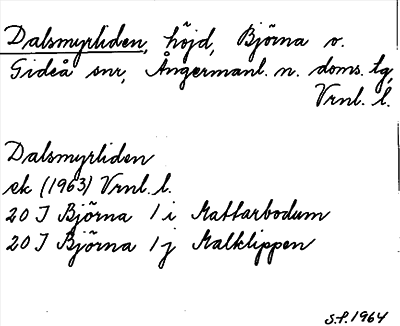 Dalsmyrliden, höjd, Björna o.
Gideå snr, Ångermanl. n. doms. tg,
Vrnl. l.
Dalsmyrliden
ek (1963) Vrnl. l.
20 I Björna 1 i Mattarbodum
20 I Björna 1 j Malklippen
S.f. 1964